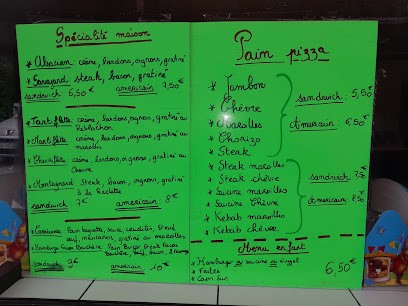 Spécialité maison
* Alsacien crème, lardons, oignons, gratiné
* Savoyard steak, bacon, gratiné
sandwich 6,50€ americain 7,50€
* Tartiflète crème, lardons, oignons, gratiné au Reblochon
* Maroiflète crème, lardons, oignons, gratiné au maroilles
* Chèvreflète crème, lardon, oignons, gratiné au Chèvre
* Montagnard Steak, bacon, oignons, gratiné à la Raclette
sandwich 7€ americain 8€
Pain baguette
* Hamburger Pain Burger Steak
sandwich 9€ americain 10€
Pain pizza
* Jambon
* Chèvre
* Maroilles
* Chorizo
* Steak
sandwich 5,50€
Américain 6,50€
* Steak maroilles
* Steak chèvre
* Lucine maroilles
* Lucine Chèvre
* Kebab maroilles
* Kebab chèvre
sandwich
Américain
Menu enfant
* Hamburger ou ou nugget
* Frites
* Capri sun
6,50€